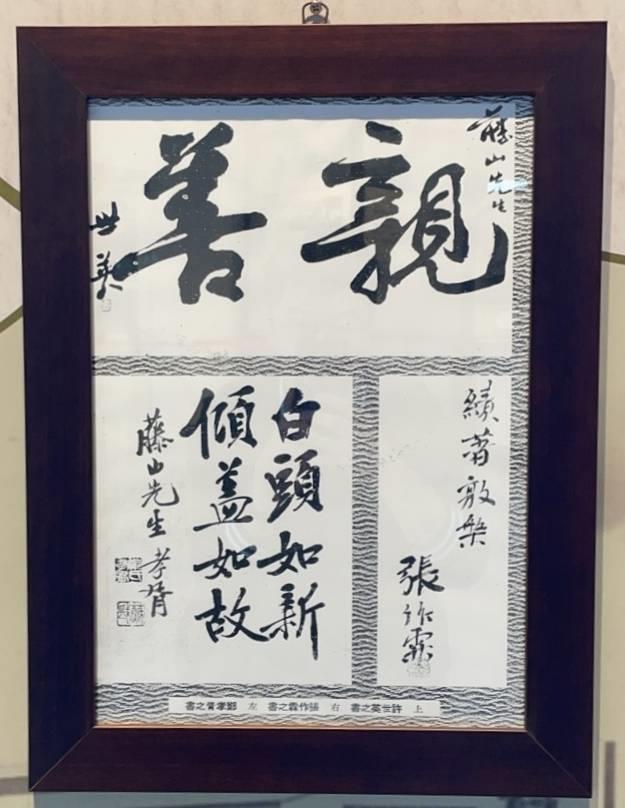 藤山先生
親善
世英
績著敦槃
張作霖
白頭如新
傾盖如故
藤山先生 孝胥
上 許世英之書 右 張作霖之書 左 鄭孝胥之書